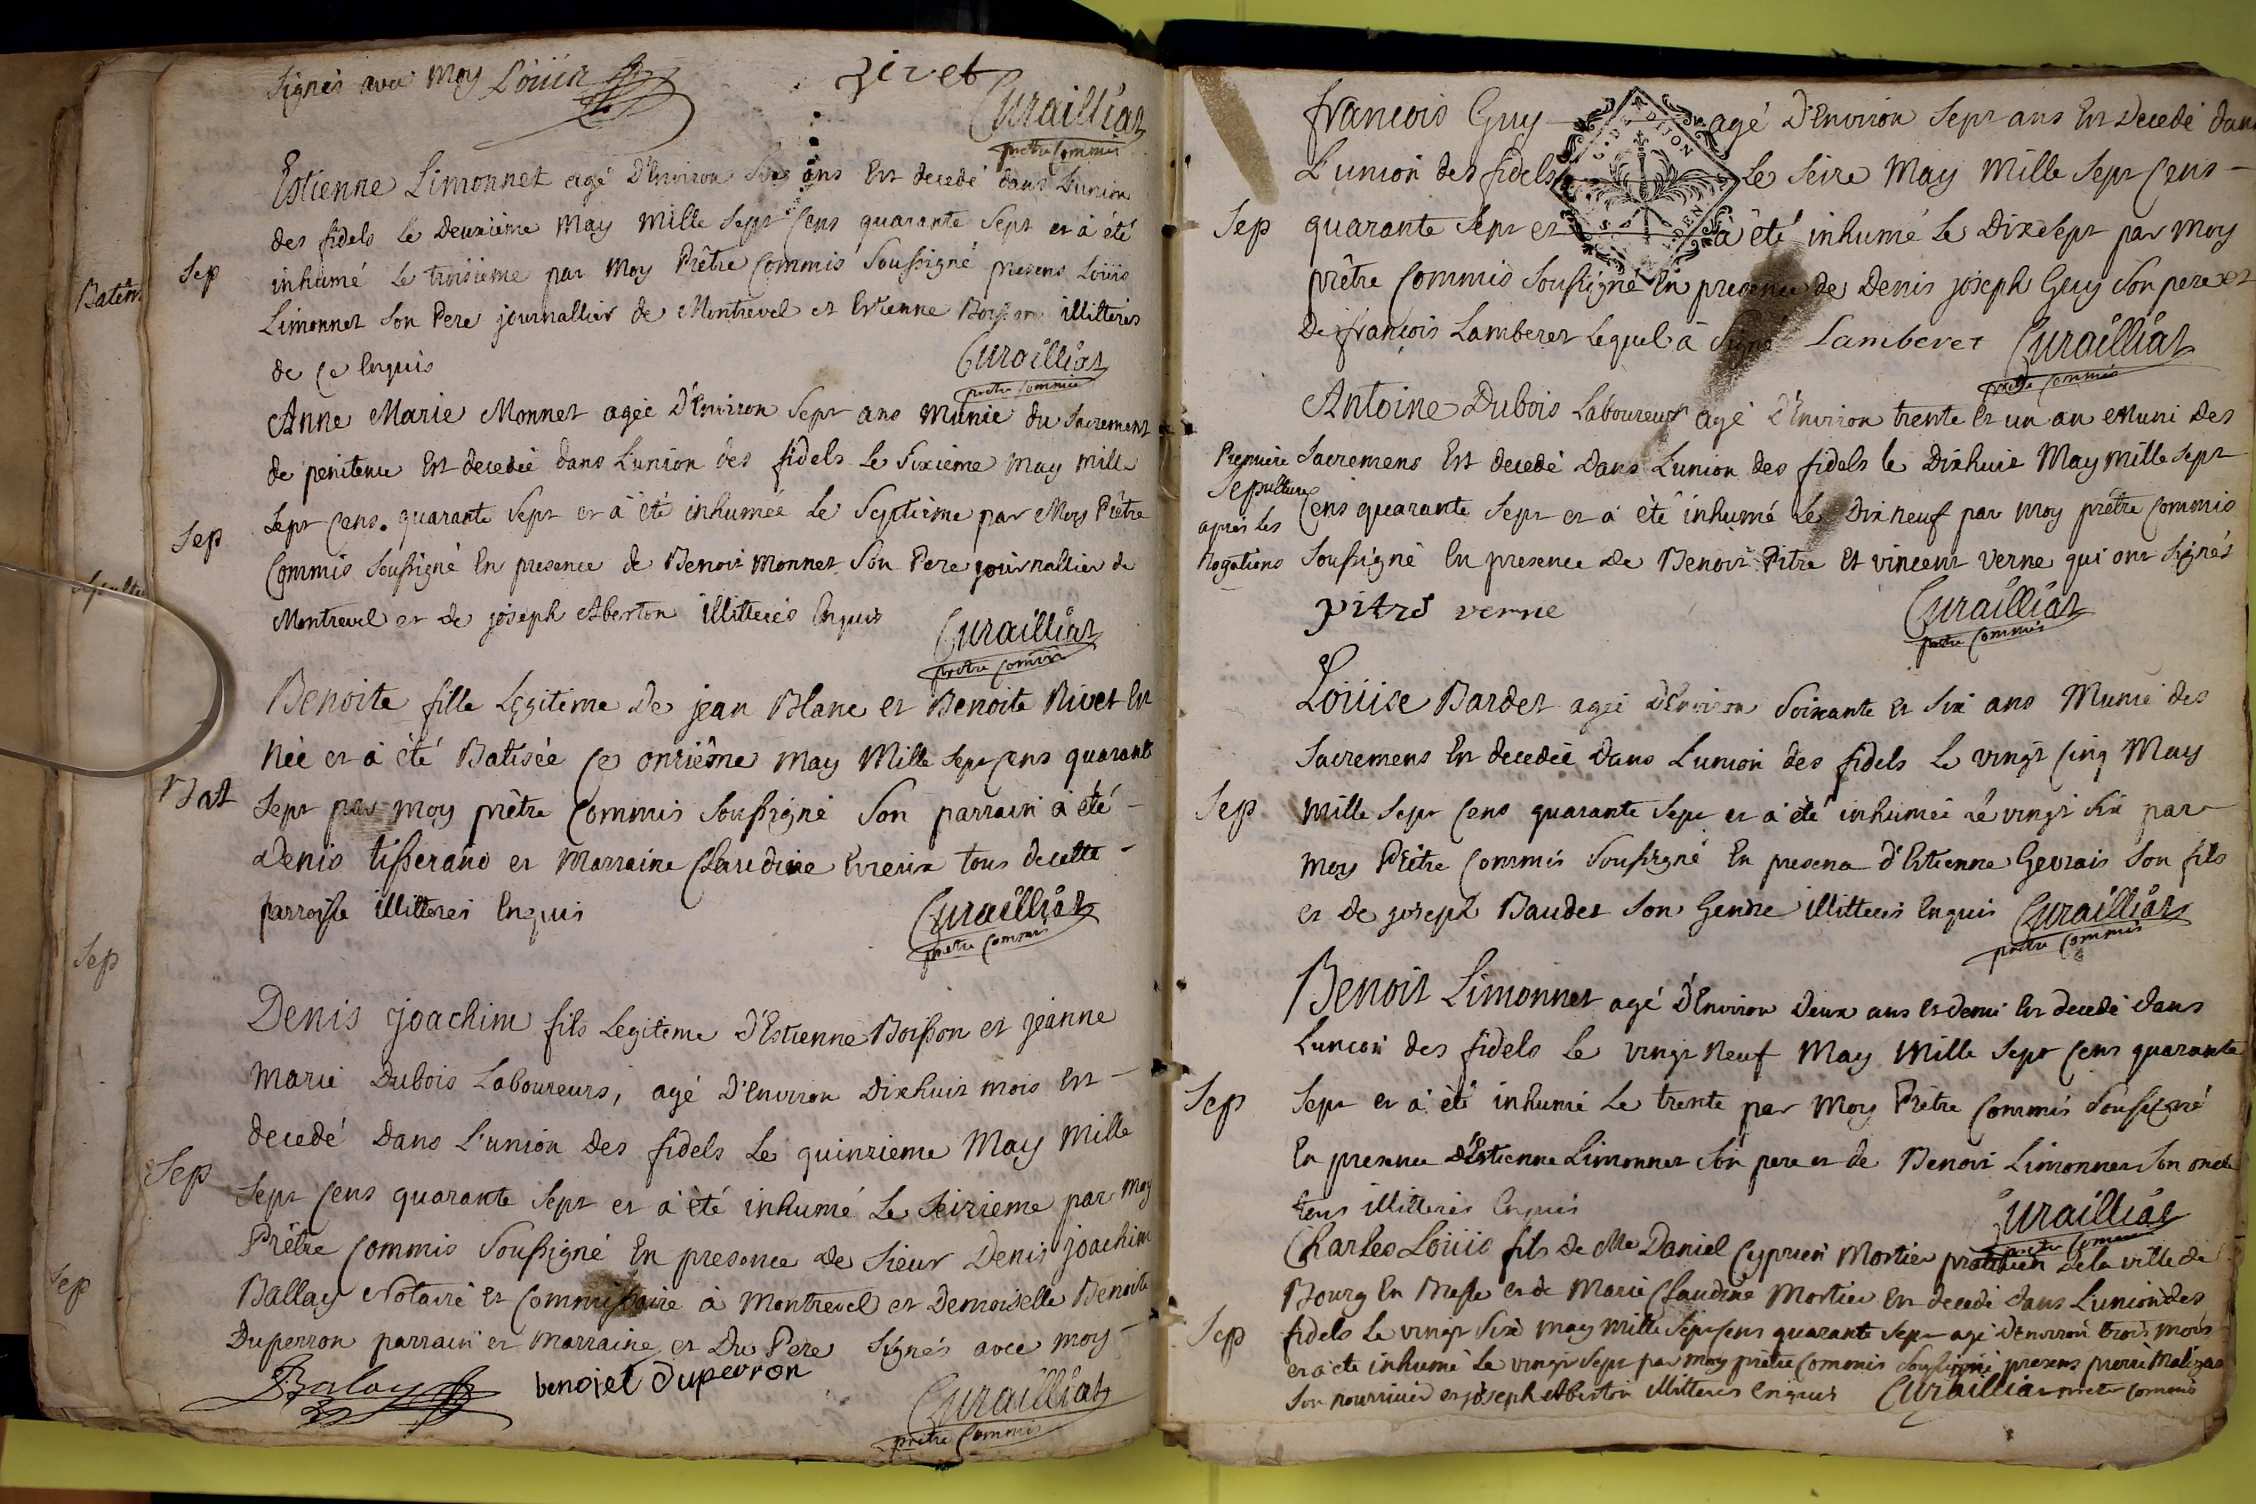 Signés avec Moy Loüin
givet
Curailliat
prêtre Commis
Estienne Limonnet agé D'Environ Six ans Est decedé dans L'union
des fidels le Deuxieme May mille Sept Cens quarante Sept et à été
Sep
inhumé Le troisieme par Moy Prêtre Commis Soussigné presens Loüis
Limonnet Son Pere journallier de Montrevel et Estienne illitterés
de Ce Enquis
Curailliat
prêtre Commis
Anne Marie Monnet agée D'Environ Sept ans Munie du Sacrement
de penitence Est decedée dans L'union des fidels Le Sixieme May mille
Sep
Sept Cens quarante Sept et à été inhumée Le Septieme par Moy Prêtre
Commis Soussigné En presence de Benoit Monnet Son Pere journallier de
Montrevel et de joseph Aberton illitterés Enquis
Curailliat
prêtre Commis
Benoite fille Legitime De jean Blanc et Benoite Rivet Est
Née et à été Batisée Ce onzième May Mille Sept Cens quarante
Bat
Sept par moy prêtre Commis Soussigné Son parrain à été
Denis tisserand et Marraine Claudine Evreux tous decette
parroisse illitterés Enquis
Curailliat
prêtre Commis
Denis joachim fils Legiteme D'Estienne Boisson et jeanne
Marie Dubois Laboureurs, agé D'Environ Dixhuit mois Est
decedé Dans L'union des fidels Le quinzieme May Mille
Sep
Sept Cens quarante Sept et à été inhumé Le Seizieme par Moy
Prêtre Commis Soussigné En presence de Sieur Denis joachim
Ballay Notaire Et Commissaire à Montrevel et Demoiselle Benoite
Duperron parrain et Marraine et Du Pere Signés avec moy
Balay
benoiet Duperron
Curailliat
prêtre Commis
Batême
Sépultu
Sep
Sep
francois Guy agé D'Environ Sept ans Est Decedé dans
L'union des fidels Le Seize May Mille Sept Cens
Sep
quarante Sept et à été inhumé Le Dixsept par Moy
prêtre Commis Soussigné En presence de Denis joseph Guy Son pere et
De françois Lamberet Lequel à Signé Lamberet
Curailliat
prêtre Commis
DIJON
Antoine Dubois Laboureur agé D'Environ trente Et un an Muni Des
Premiere
Sepulture
après les
Rogations
Sacremens Est decedé Dans L'union des fidels le Dixhuit May mille Sept
Cens quarante Sept et à été inhumé Le Dixneuf par moy prêtre Commis
Soussigné En presence de Benoit Pitre Et vincent Verne qui ont Signés
pitre verne
Curailliat
prêtre Commis
Loüise Bardet agée D'Environ Soixante Et Six ans Munie des
Sacremens Est decedée Dans L'union des fidels Le vingt Cinq May
Sep
Mille Sept Cens quarante Sept et à été inhumée Le vingt Six par
Moy Prêtre Commis Soussigné En presence d'Estienne Gevrais Son fils
et de joseph Baudet Son Gendre illitterés Enquis
Curailliat
prêtre Commis
Benoit Limonnet agé D'Environ Deux ans Et demi Est decedé Dans
L'union des fidels Le vingt Neuf May Mille Sept Cens quarante
Sep
Sept et à été inhumé Le trente par Moy Prêtre Commis Soussigné
En presence D'Estienne Limonnet Son pere et de Benoit Limonnet Son oncle
tous illitterés Enquis
Curailliat
prêtre Commis
Charles Loüis fils de Me Daniel Cyprien Mortier praticien de la ville de
Bourg En Bresse et de Marie Claudine Mortier Est decedé dans L'union des
Sep
fidels Le vingt Six May mille Sept Cens quarante Sept agé D'Environ trois mois
et à été inhumé Le vingt Sept par moy prêtre Commis Soussigné presens pierre
Son nourricier et joseph Aberton illitterés Enquis Curailliat prêtre Commis